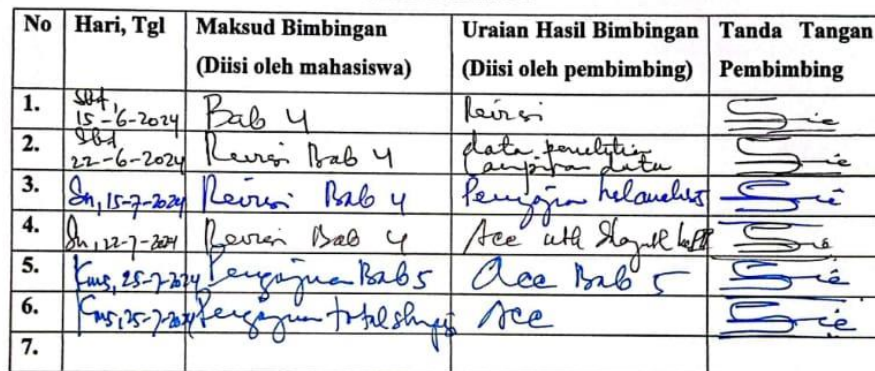 No Hari, Tgl Maksud Bimbingan Uraian Hasil Bimbingan Tanda Tangan
(Diisi oleh mahasiswa) (Diisi oleh pembimbing) Pembimbing
1. Sbt, 15-6-2024 Bab 4 Revisi
2. Sbt 22-6-2024 Revisi Bab 4 data penelitian
lampiran data
3. Sn, 15-7-2024 Revisi Bab 4
4. Sn, 22-7-2024 Revisi Bab 4 Acc
5. Kms, 25-7-2024 Pengajuan Bab 5 Acc Bab 5
6. Kms, 25-7-2024 Pengajuan total skripsi Acc
7.